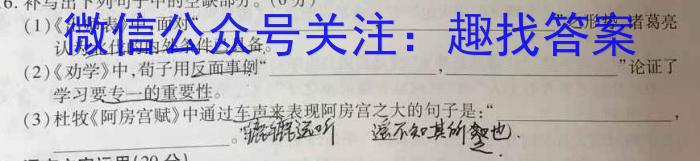 6.补写出下列句子中的空缺部分。(6分)
(1)《 表》中,面对“ 形势,诸葛亮
微信公众号关注:趣找答案
认 条件已具备。
(2)《劝学》中,荀子用反面事例“ , ”论证了
学习要专一的重要性。
(3)杜牧《阿房宫赋》中通过车声来表现阿房宫之大的句子是:“ ,
。 辘辘远听 遥不知其所 也.
(20分)